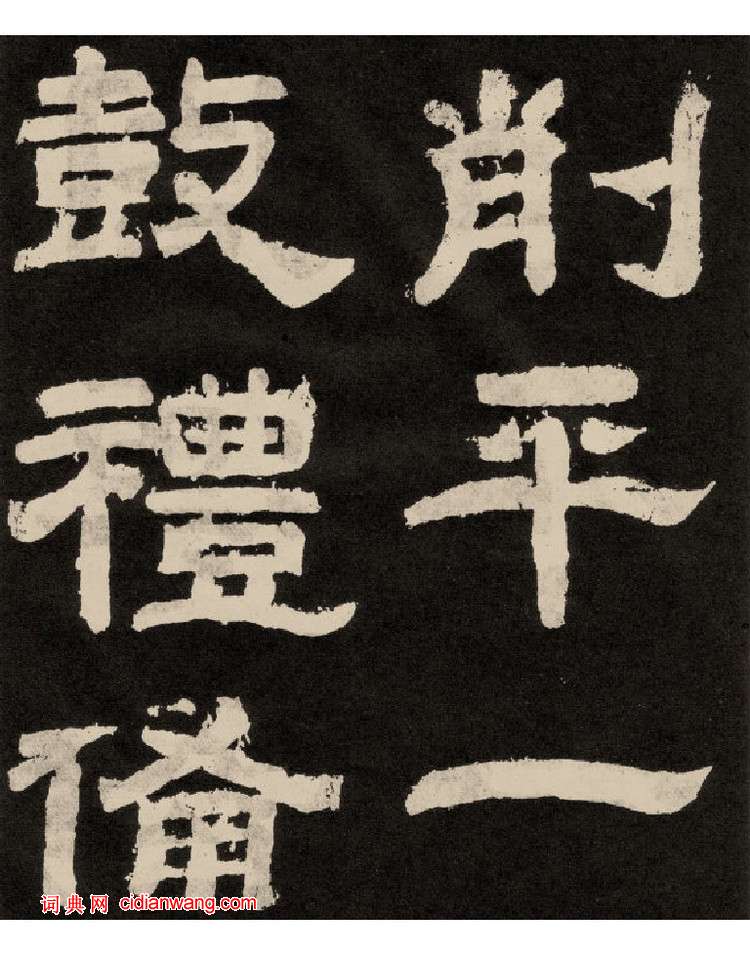 削平一
鼓禮備
词典网 cidianwang.com